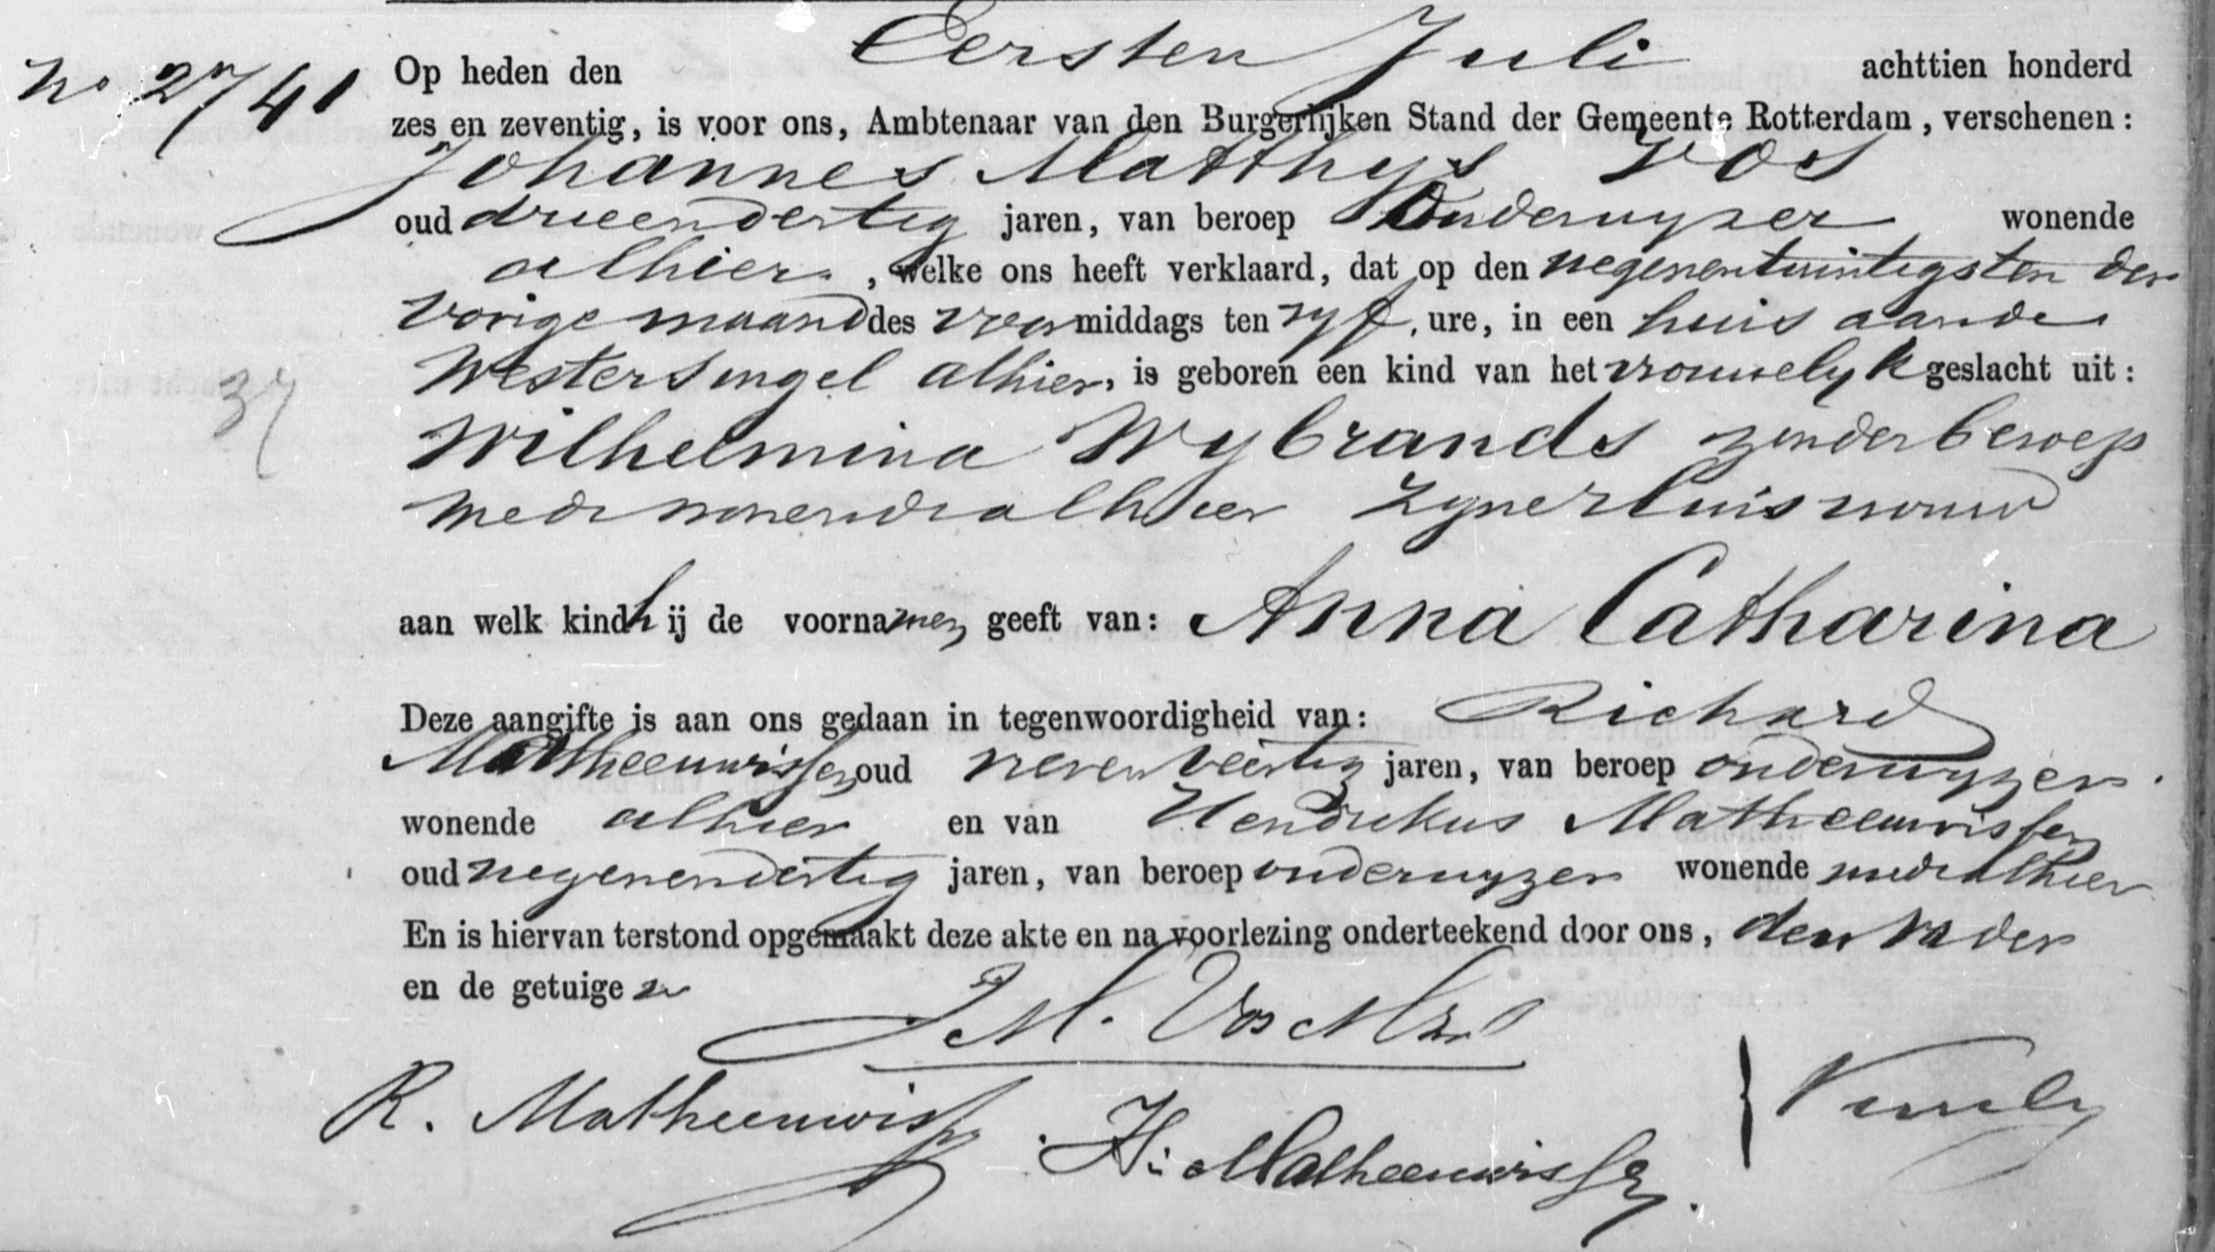 No 2741
Op heden den Eersten Juli achttien honderd
zes en zeventig, is voor ons, Ambtenaar van den Burgerlijken Stand der Gemeente Rotterdam, verschenen:
Johannes Matthys Vos
oud drieendertig jaren, van beroep Onderwyzer wonende
alhier, welke ons heeft verklaard, dat op den negenentwintigsten der
vorige maand des voormiddags ten vyf ure, in een huis aan de
Westersingel alhier, is geboren een kind van het vrouwelyk geslacht uit:
Wilhelmina Wybrands zonder beroep
mede wonende alhier zyner huisvrouw
37
aan welk kind hij de voornamen geeft van: Anna Catharina
Deze aangifte is aan ons gedaan in tegenwoordigheid van: Richard
Matheeuwissen oud zevenveertig jaren, van beroep onderwyzer
wonende alhier en van Hendrikus Matheeuwissen
oud negenendertig jaren, van beroep onderwyzer wonende mede alhier
En is hiervan terstond opgemaakt deze akte en na voorlezing onderteekend door ons, den vader
en de getuigen
J M. Vos Mzn
R. Matheeuwissen
H. Matheeuwissen